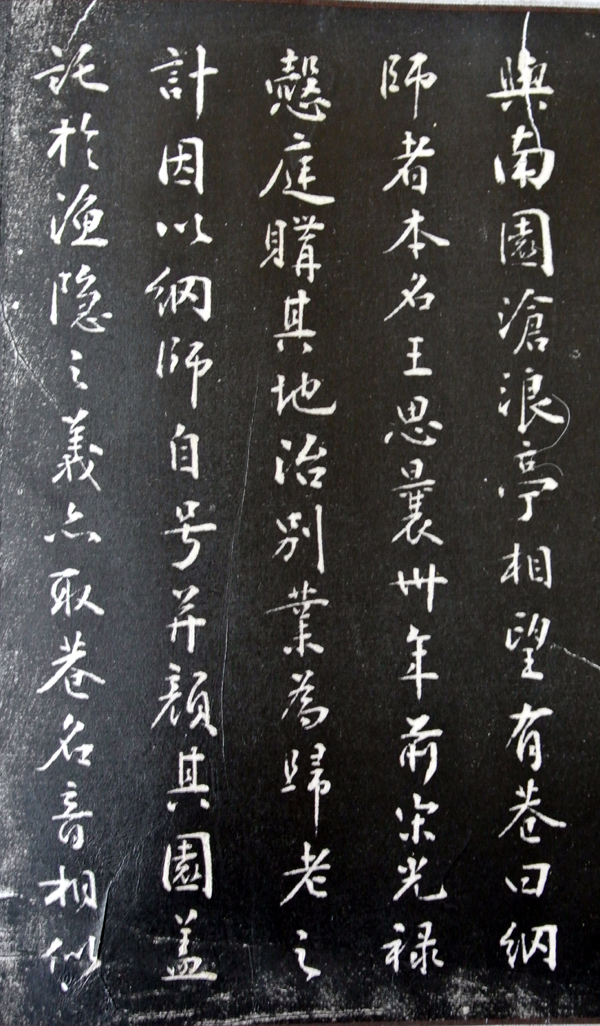 與南園滄浪亭相望有巷曰網
師者本名王思曩卅年前宋光祿
慤庭購其地治別業為歸老之
計因以網師自号并顏其園蓋
託於漁隱之義亦取巷名音相似